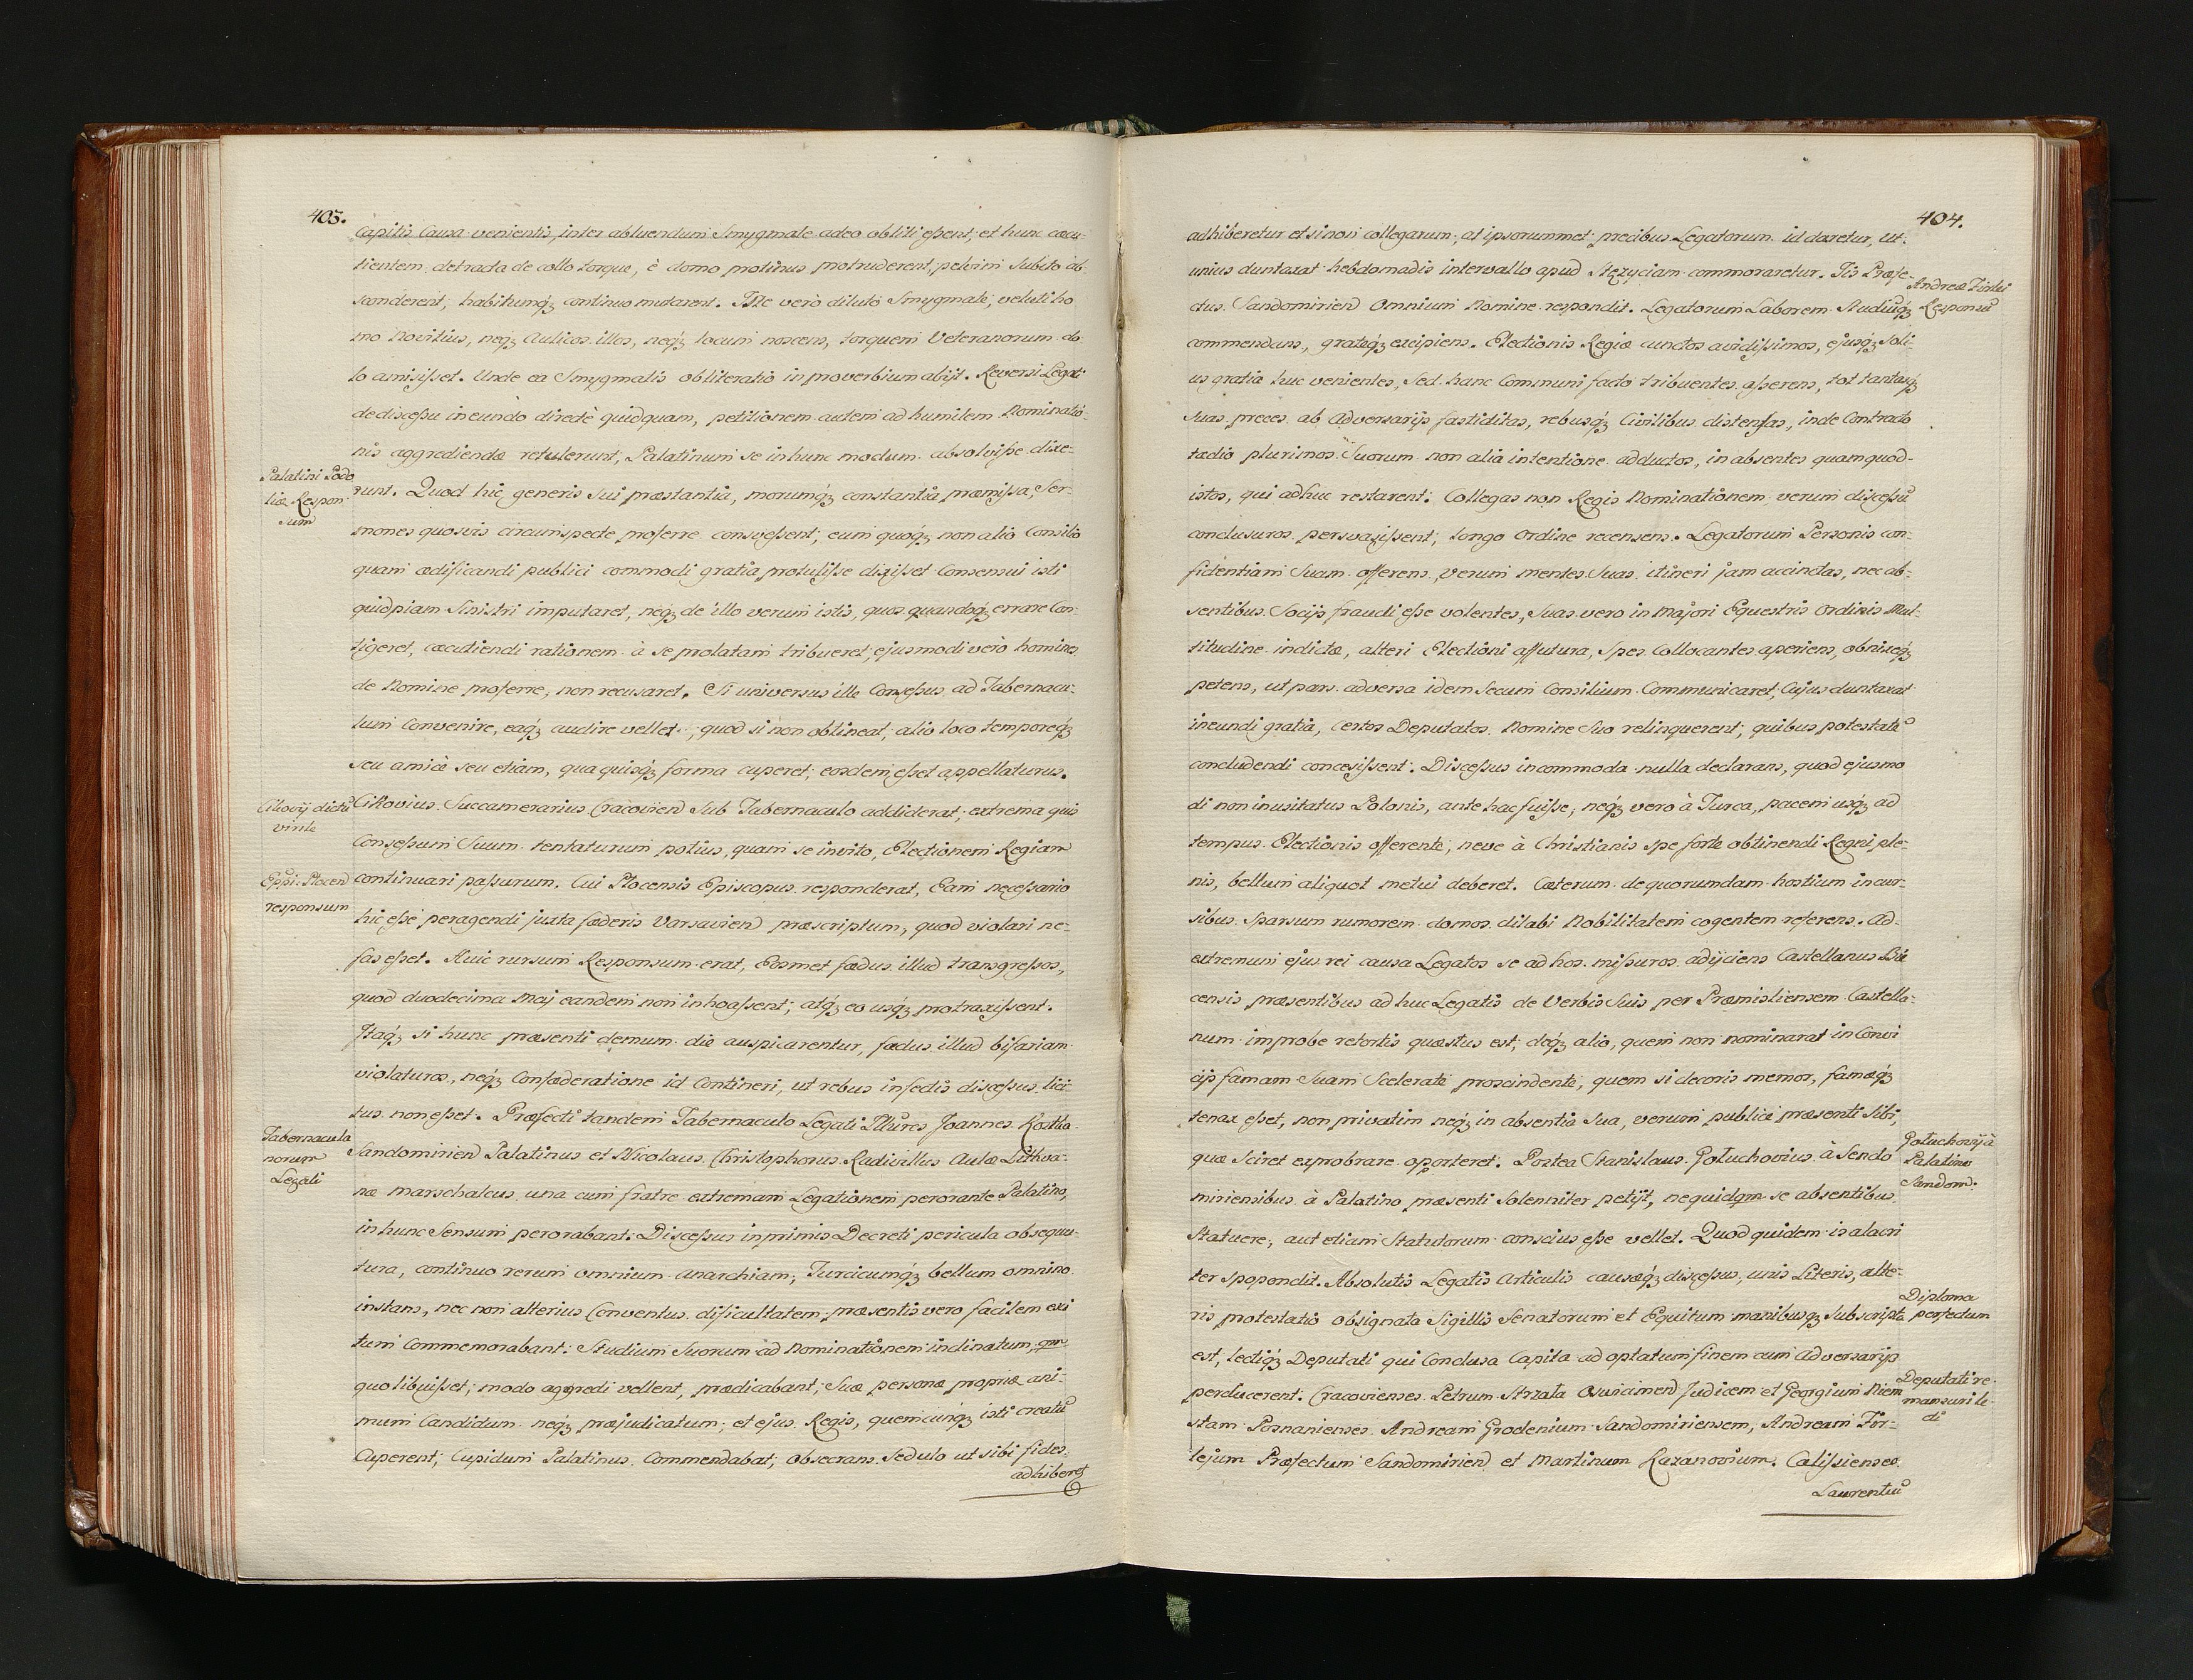 403.
capitis causa venientis, inter abluendum Smygmate adeo obliti eßent; et hunc cæcu-
tientem, detracta de collo torque, è domo protinus protruderent, pelvim subito ab-
sconderent, habitumq́ continuo mutarent. Iste verò dilutô Smygmate, veluti ho
mo Novitius, neq́ Aulicos illos, neq́ locum noscens, torquem Veteranorum do
lo amisißet. Unde ea Smygmatis obliteratio in proverbium abijt. Reversi Legati
de discessu ineundo directè quidquam, petitionem autem ad humilem Nominatio-
nis aggrediendæ retulerunt, Palatinum se in hunc modum absolviße dixe-
Palatini Podo
liæ Respon-
sum
runt. Quod hic, generis sui præstantia, morumq́ constantia præmißa, Ser-
mones quosvis circumspecte proferre consveßent; eum quoq́ non alio Consilio
quam ædificandi publici commodi gratia protuliße dixißet Consensui isti
quidpiam Sinistri imputaret, neq́ de illo verum istis, quos quandoq́ errare Con-
tigeret, cæcutiendi rationem à se prolatam tribueret, ejusmodi verò homines
de Nomine proferre, non recusaret. Si universus ille Conseßus ad Tabernacu-
lum Convenire, eaq́ audire vellet, quod si non obtineat, alio loco temporeq́
seu amicè seu etiam, qua quisq́ forma cuperet, eosdem eßet appellaturus.
Cikovij dictũ
virile
Cikovius Succamerarius Cracovien̄ Sub Tabernaculo addiderat; extrema quis
Conseßum Suum tentaturum potius, quam se invito, Electionem Regiam
Epp̄i Plocen̄
responsum
continuari paßurum. Cui Plocensis Episcopus responderat, Eam neceßario
hic eße peragendi juxta fæderis Varsavien̄ præscriptum, quod violari ne-
fas eßet. Huic rursum Responsum erat, Eosmet fædus illud transgreßos,
quod duodecima Maj eandem non inhoaßent; atq́ eo usq́ protraxißent.
Itaq́ si hunc præsenti demum die auspicarentur, fædus illud bifariam
violaturos, neq́ Confæderatione id Contineri, ut rebus infectis disceßus lici
tus non eßet. Præfecti tandem Tabernaculo Legati Illũres Joannes Kostka
Tabernacula
norum
Legati
Sandomirien̄ Palatinus et Nicolaus Christophorus Radivillus Aulæ Lithva-
næ Marschalcus, una cum fratre extremam Legationem perorante Palatino,
in hunc Sensum perorabant. Disceßus inprimis Decreti pericula obsequu-
tura, continuo rerum omnium Anarchiam, Turcicumq́ bellum omnino
instans, nec non alterius Conventus dificultatem præsentis vero facilem exi
tum Commemorabant: Studium Suorum ad Nominationem inclinatum, qm̄
quo libuißet; modo aggredi vellent, prædicabant, Suæ personæ propriæ ani-
mum Candidum neq́ præjudicatum; et ejus Regis, quemcunq́ isti creatũ
Cuperent; Cupidum Palatinus Commendabat; obsecrans Sedulo ut sibi fides
adhiberet
404.
adhiberetur et si non collegarum, at ipsorummet precibus Legatorum id daretur, Ut
unius duntaxat hebdomadis intervallo apud Stezyciam commoraretur. Iis Præfe-
Andreæ Firlei
Responsũ
ctus Sandomirien̄ Omnium Nomine respondit. Legatorum Laborem Studiũq́
commendans, grateq́ excipiens. Electionis Regiæ cunctos avidißimos, ejusq́ Soli-
us gratia huc venientes, Sed hanc Communi facto tribuentes, aßerens, tot tantasq́
Suas preces ab Adversarijs fastiditas, rebusq́ Civilibus distensas, inde Contracto
tædio plurimos Suorum non alia intentione adductos, in absentes quamquod-
istos, qui adhuc restarent: Collegas non Regis Nominationem verum disceßũ
conclusuros persvasißent; longo Ordine recensens. Legatorum Personis con-
fidentiam Suam offerens, verum mentes Suas itineri jam accinctas, nec ab-
sentibus Socijs fraudi eße volentes, Suas vero in majori Equestris Ordinis Mul-
titudine indictæ, alteri Electioni affutura, Spes Collocantes aperiens, obnixeq́
petens, ut pars adversa idem Secum Consilium Communicaret, Cujus duntaxat
ineundi gratia, Certos Deputatos Nomine Suo relinquerent; quibus potestatẽ
concludendi conceßißent: Disceßus incommoda nulla declarans, quod ejusmo
di non inusitatus Polonis, ante hac fuiße, neq́ vero à Turca, pacem usq́ ad
tempus Electionis offerente, neve à Christianis Spe forte obtinendi Regni ple-
nis, bellum aliquot metui deberet. Cæterum de quorumdam hostium incur-
sibus Sparsum rumorem domos dilabi Nobilitatem cogentem referens. Ad-
extremum ejus rei causa Legatos se ad hos mißuros adijciens Castellanus Bie
censis præsentibus adhuc Legatis de Verbis Suis per Præmisliensem Castella-
num improbe retortis quæstus est, deq́ alio, quem non nominarat in Convi
cijs famam Suam Scelerate proscindente, quem si decoris memor, famæq́
tenax eßet, non privatim neq́ in absentia Sua, verum publice præsenti Sibi,
quæ Sciret exprobrare oporteret. Postea Stanislaus Gołuchovius à Sendo
Gołuchovij à
Palatino
Sandom:
miriensibus à Palatino præsenti Solenniter petijt, ne quidqm̄ se absentibus
Statuere, aut etiam Statutorum conscius eße vellet. Quod quidem is alacri
ter spopondit. Absolutis Legatis Articulis causæq́ disceßus, unis Literis, alte-
Diploma
perfectum
ris protestatio obsignata Sigillis Senatorum et Equitum manibusq́ Subscripta
est, lectiq́ Deputati qui Conclusa Capita ad optatum finem cum Adversarijs
Deputati re-
mansuri le-
cti
perducerent. Cracovienses Petrum Strzała Osviecimen̄ Judicem et Georgium Niem
stam Posnanienses Andream Grodenium Sandomiriensem, Andream Fir-
lejum Præfectum Sandomirien̄ et Martinum Kazanovium. Calißienses
Laurentiũ